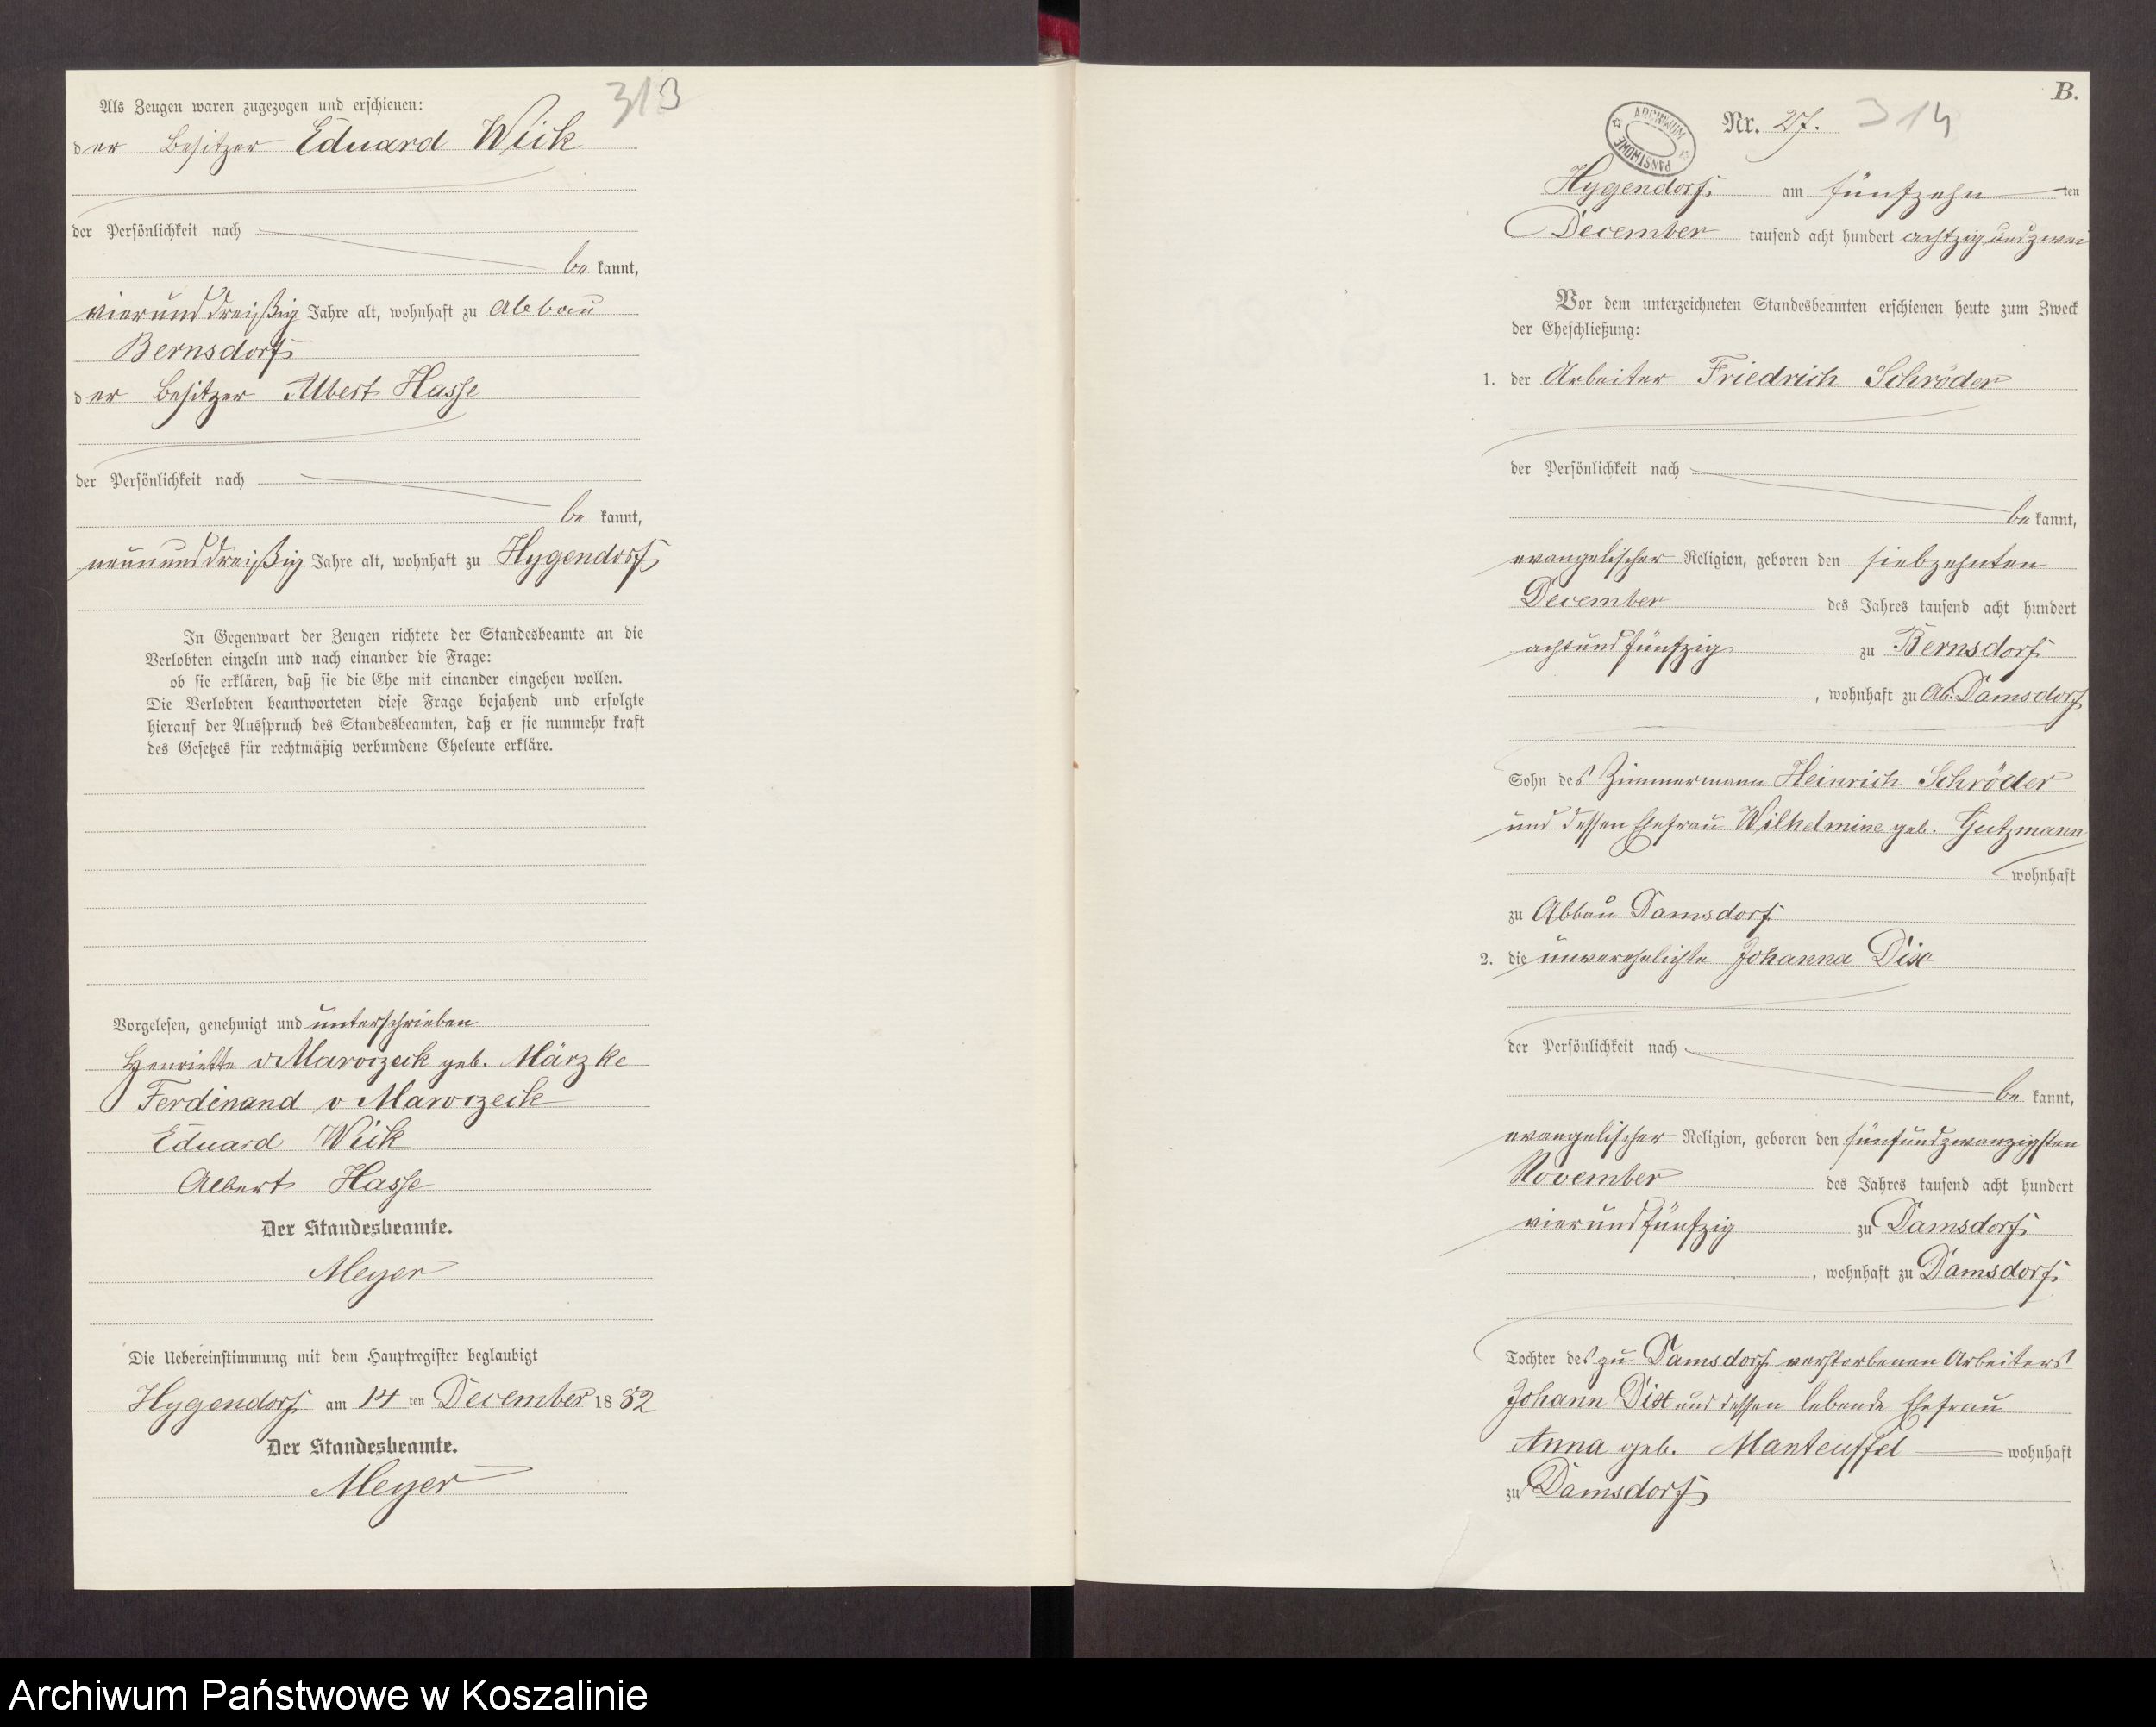 313
Als Zeugen waren zugezogen und erschienen:
der Besitzer Eduard Wiik
der Persönlichkeit nach
be kannt,
vierunddreißig Jahre alt, wohnhaft zu Abbau
Bernsdorf
der Besitzer Albert Hasse
der Persönlichkeit nach
be kannt,
neununddreißig Jahre alt, wohnhaft zu Hygendorf
In Gegenwart der Zeugen richtete der Standesbeamte an die
Verlobten einzeln und nach einander die Frage:
ob sie erklären, daß sie die Ehe mit einander eingehen wollen.
Die Verlobten beantworteten diese Frage bejahend und erfolgte
hierauf der Ausspruch des Standesbeamten, daß er sie nunmehr kraft
des Gesetzes für rechtmäßig verbundene Eheleute erkläre.
Vorgelesen, genehmigt und unterschrieben
Henriette v Maroczeck geb. Märzke
Ferdinand v Maroczeck
Eduard Wiik
Albert Hasse
Der Standesbeamte.
Meyer
Die Uebereinstimmung mit dem Hauptregister beglaubigt
Hygendorf am 14 ten December 1882
Der Standesbeamte.
Meyer
B.
Nr. 27. 314
ARCHIWUM PAŃSTWOWE
Hygendorf am fünfzehn ten
December tausend acht hundert achtzig und zwei
Vor dem unterzeichneten Standesbeamten erschienen heute zum Zweck
der Eheschließung:
1. der Arbeiter Friedrich Schröder
der Persönlichkeit nach
be kannt,
evangelischer Religion, geboren den siebzehnten
December des Jahres tausend acht hundert
achtundfünfzig zu Bernsdorf
, wohnhaft zu Ab. Damsdorf
Sohn des Zimmermann Heinrich Schröder
und dessen Ehefrau Wilhelmine geb. Gutzmann
wohnhaft
zu Abbau Damsdorf
2. die unverehelichte Johanna Dix
der Persönlichkeit nach
be kannt,
evangelischer Religion, geboren den fünfundzwanzigsten
November des Jahres tausend acht hundert
vierundfünfzig zu Damsdorf
, wohnhaft zu Damsdorf
Tochter des zu Damsdorf verstorbenen Arbeiters
Johann Dix und dessen lebende Ehefrau
Anna geb. Manteuffel wohnhaft
zu Damsdorf
Archiwum Państwowe w Koszalinie